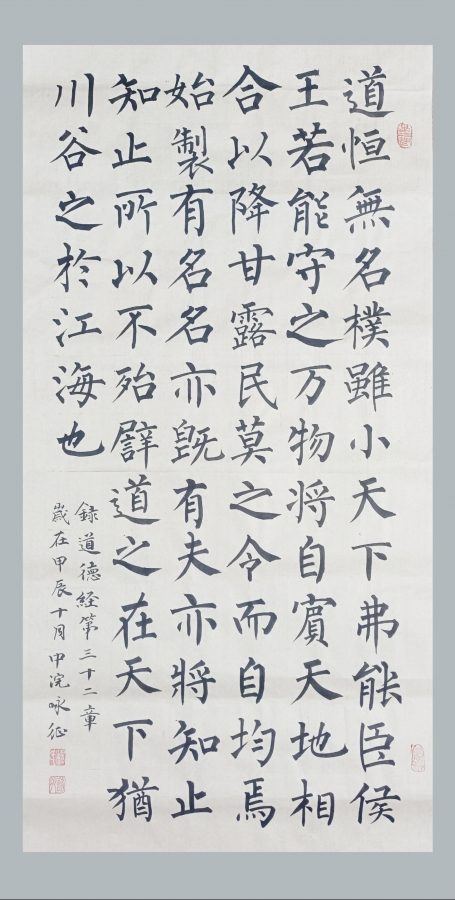 道恒無名樸雖小天下弗能臣侯
王若能守之万物将自賓天地相
合以降甘露民莫之令而自均焉
始製有名名亦既有夫亦將知止
知止所以不殆譬道之在天下猶
川谷之於江海也
録道德経第三十二章
嵗在甲辰十月申浣咏征